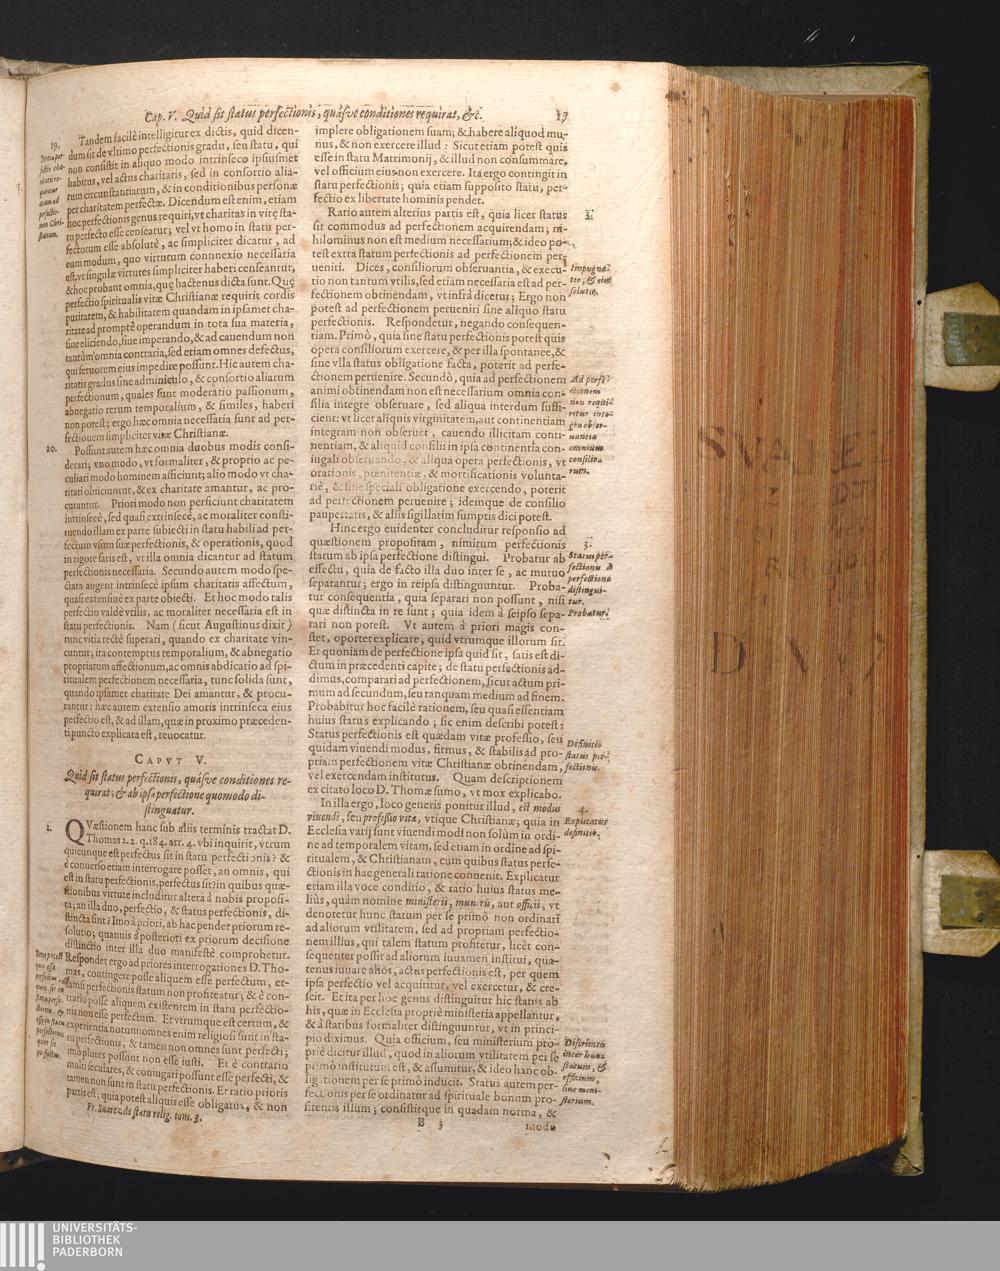 Cap. V. Quid sit status perfectionis, quásve conditiones requirat, &c.
17
19.
Tandem facilè intelligitur ex dictis, quid dicen-
dum sit de vltimo perfectionis gradu, seu statu, qui
non consistit in aliquo modo intrinseco ipsiusmet
habitus, vel actus charitatis, sed in consortio alia-
rum circunstantiarum, & in conditionibus personæ
per charitatem perfectæ. Dicendum est enim, etiam
hoc perfectionis genus requiri, vt charitas in vitę sta-
tu perfecto esse censeatur; vel vt homo in statu per-
fectorum esse absolutè, ac simpliciter dicatur, ad
eum modum, quo virtutum connnexio necessaria
est, vt singulæ virtutes simpliciter haberi censeantur,
& hoc probant omnia, quę hactenus dicta sunt. Quę
perfectio spiritualis vitæ Christianæ requirit cordis
puritatem, & habilitatem quandam in ipsamet cha-
ritate ad promptè operandum in tota sua materia,
siue eliciendo, siue imperando, & ad cauendum non
tantùm omnia contraria, sed etiam omnes defectus,
qui feruorem eius impedire possunt. Hic autem cha-
ritatis gradus sine adminiculo, & consortio aliarum
perfectionum, quales sunt moderatio passionum,
abnegatio rerum temporalium, & similes, haberi
non potest; ergo hæc omnia necessaria sunt ad per-
fectionem simpliciter vitæ Christianæ.
20.
Possunt autem hæc omnia duobus modis consi-
derari; vno modo, vt formaliter, & proprio ac pe-
culiari modo hominem afficiunt; alio modo vt cha-
ritati obiiciuntur, & ex charitate amantur, ac pro-
curantur. Priori modo non perficiunt charitatem
intrinsecè, sed quasi extrinsecè, ac moraliter consti-
tuendo illam ex parte subiecti in statu habili ad per-
fectum vsum suæ perfectionis, & operationis, quod
in rigore satis est, vt illa omnia dicantur ad statum
perfectionis necessaria. Secundo autem modo spe-
ctata augent intrinsecè ipsum charitatis affectum,
quasi extensiuè ex parte obiecti. Et hoc modo talis
perfectio valdè vtilis, ac moraliter necessaria est in
statu perfectionis. Nam (sicut Augustinus dixit)
tunc vitia rectè superari, quando ex charitate vin-
cuntur; ita contemptus temporalium, & abnegatio
propriarum affectionum, ac omnis abdicatio ad spi-
ritualem perfectionem necessaria, tunc solida sunt,
quando ipsamet charitate Dei amantur, & procu-
rantur: hæc autem extensio amoris intrinseca eius
perfectio est, & ad illam, quæ in proximo præceden-
ti puncto explicata est, reuocatur.
CAPVT V.
Quid sit status perfectionis, quásve conditiones re-
quirat; & ab ipsa perfectione quomodo di-
stinguatur.
1.
QVæstionem hanc sub aliis terminis tractat D.
Thomas 2. 2. q. 184. art. 4. vbi inquirit, vtrum
quicunque est perfectus sit in statu perfectionis? &
è conuerso etiam interrogare posset, an omnis, qui
est in statu perfectionis, perfectus sit? in quibus quæ-
stionibus virtute includitur altera à nobis proposi-
ta; an illa duo, perfectio, & status perfectionis, di-
stincta sint? Imo à priori, ab hac pendet priorum re-
solutio; quanuis à posteriori ex priorum decisione
distinctio inter illa duo manifestè comprobetur.
Respondet ergo ad priores interrogationes D. Tho-
mas, contingere posse aliquem esse perfectum, et-
iamsi perfectionis statum non profiteatur; & è con-
trario posse aliquem existentem in statu perfectio-
nis non esse perfectum. Et vtrumque est certum, &
experientia notum: omnes enim religiosi sunt in sta-
tu perfectionis, & tamen non omnes sunt perfecti;
imò plures possunt non esse iusti. Et è contrario
multi seculares, & coniugati possunt esse perfecti, &
tamen non sunt in statu perfectionis. Et ratio prioris
partis est; quia potest aliquis esse obligatus, & non
Fr. Suarez de statu relig. tom. 3.
implere obligationem suam; & habere aliquod mu-
nus, & non exercere illud: Sicut etiam potest quis
esse in statu Matrimonij, & illud non consummare,
vel officium eius non exercere. Ita ergo contingit in
statu perfectionis; quia etiam supposito statu, per-
fectio ex libertate hominis pendet.
Ratio autem alterius partis est, quia licet status
sit commodus ad perfectionem acquirendam; ni-
hilominus non est medium necessarium; & ideo po-
test extra statum perfectionis ad perfectionem per-
ueniri. Dices, consiliorum obseruantia, & execu-
tio non tantum vtilis, sed etiam necessaria est ad per-
fectionem obtinendam, vt infrà dicetur; Ergo non
potest ad perfectionem perueniri sine aliquo statu
perfectionis. Respondetur, negando consequen-
tiam. Primò, quia sine statu perfectionis potest quis
opera consiliorum exercere, & per illa spontanee, &
sine vlla status obligatione facta, poterit ad perfe-
ctionem peruenire. Secundò, quia ad perfectionem
animi obtinendam non est necessarium omnia con-
silia integre obseruare, sed aliqua interdum suffi-
cient: vt licet aliquis virginitatem, aut continentiam
integram non obseruet, cauendo illicitam conti-
nentiam, & aliquid consilii in ipsa continentia con-
iugali obseruando, & aliqua opera perfectionis, vt
orationis, pœnitentiæ, & mortificationis volunta-
riè, & sine speciali obligatione exercendo, poterit
ad perfectionem peruenire; idemque de consilio
paupertatis, & aliis sigillatim sumptis dici potest.
Hinc ergo euidenter concluditur responsio ad
quæstionem propositam, nimirum perfectionis
statum ab ipsa perfectione distingui. Probatur ab
effectu, quia de facto illa duo inter se, ac mutuo
separantur; ergo in reipsa distinguuntur. Proba-
tur consequentia, quia separari non possunt, nisi
quæ distincta in re sunt; quia idem à seipso sepa-
rari non potest. Vt autem à priori magis con-
stet, oportet explicare, quid vtrumque illorum sit.
Et quoniam de perfectione ipsa quid sit, satis est di-
ctum in præcedenti capite; de statu perfectionis ad-
dimus, comparari ad perfectionem, sicut actum pri-
mum ad secundum, seu tanquam medium ad finem.
Probabitur hoc facilè rationem, seu quasi essentiam
huius status explicando; sic enim describi potest:
Status perfectionis est quædam vitæ professio, seu
quidam viuendi modus, firmus, & stabilis ad pro-
priam perfectionem vitæ Christianæ obtinendam,
vel exercendam institutus. Quam descriptionem
ex citato loco D. Thomæ sumo, vt mox explicabo.
In illa ergo, loco generis ponitur illud, est modus
viuendi, seu professio vitæ, vtique Christianæ; quia in
Ecclesia varij sunt viuendi modi non solùm in ordi-
ne ad temporalem vitam, sed etiam in ordine ad spi-
ritualem, & Christianam, cum quibus status perfe-
ctionis in hac generali ratione conuenit. Explicatur
etiam illa voce conditio, & ratio huius status me-
liùs, quàm nomine ministerij, muneris, aut officii, vt
denotetur hunc statum per se primò non ordinari
ad aliorum vtilitatem, sed ad propriam perfectio-
nem illius, qui talem statum profitetur, licèt con-
sequenter possit ad aliorum iuuamen institui, qua-
tenus iuuare alios, actus perfectionis est, per quem
ipsa perfectio vel acquiritur, vel exercetur, & cre-
scit. Et ita per hoc genus distinguitur hic status ab
his, quæ in Ecclesia propriè ministeria appellantur,
& à statibus formaliter distinguuntur, vt in princi-
pio diximus. Quia officium, seu ministerium pro-
priè dicitur illud, quod in aliorum vtilitatem per se
primò institutum est, & assumitur, & ideo hanc ob-
ligationem per se primò inducit. Status autem per-
fectionis per se ordinatur ad spirituale bonum pro-
fitentis illum; consistitque in quadam norma, &
B 3
modo
2.
Impugna-
tio, & eius
solutio.
Ad perfe-
ctionem
non requi-
ritur inte-
gra obser-
uantia
omnium
consilio-
rum.
3.
Status per-
fectionis à
perfectione
distingui-
tur.
Probatur.
Definitio
status per-
fectionis.
4.
Explicatur
definitio.
Discrimen
inter hunc
statum, &
officium,
siue mini-
sterium.
UNIVERSITÄTS-
BIBLIOTHEK
PADERBORN